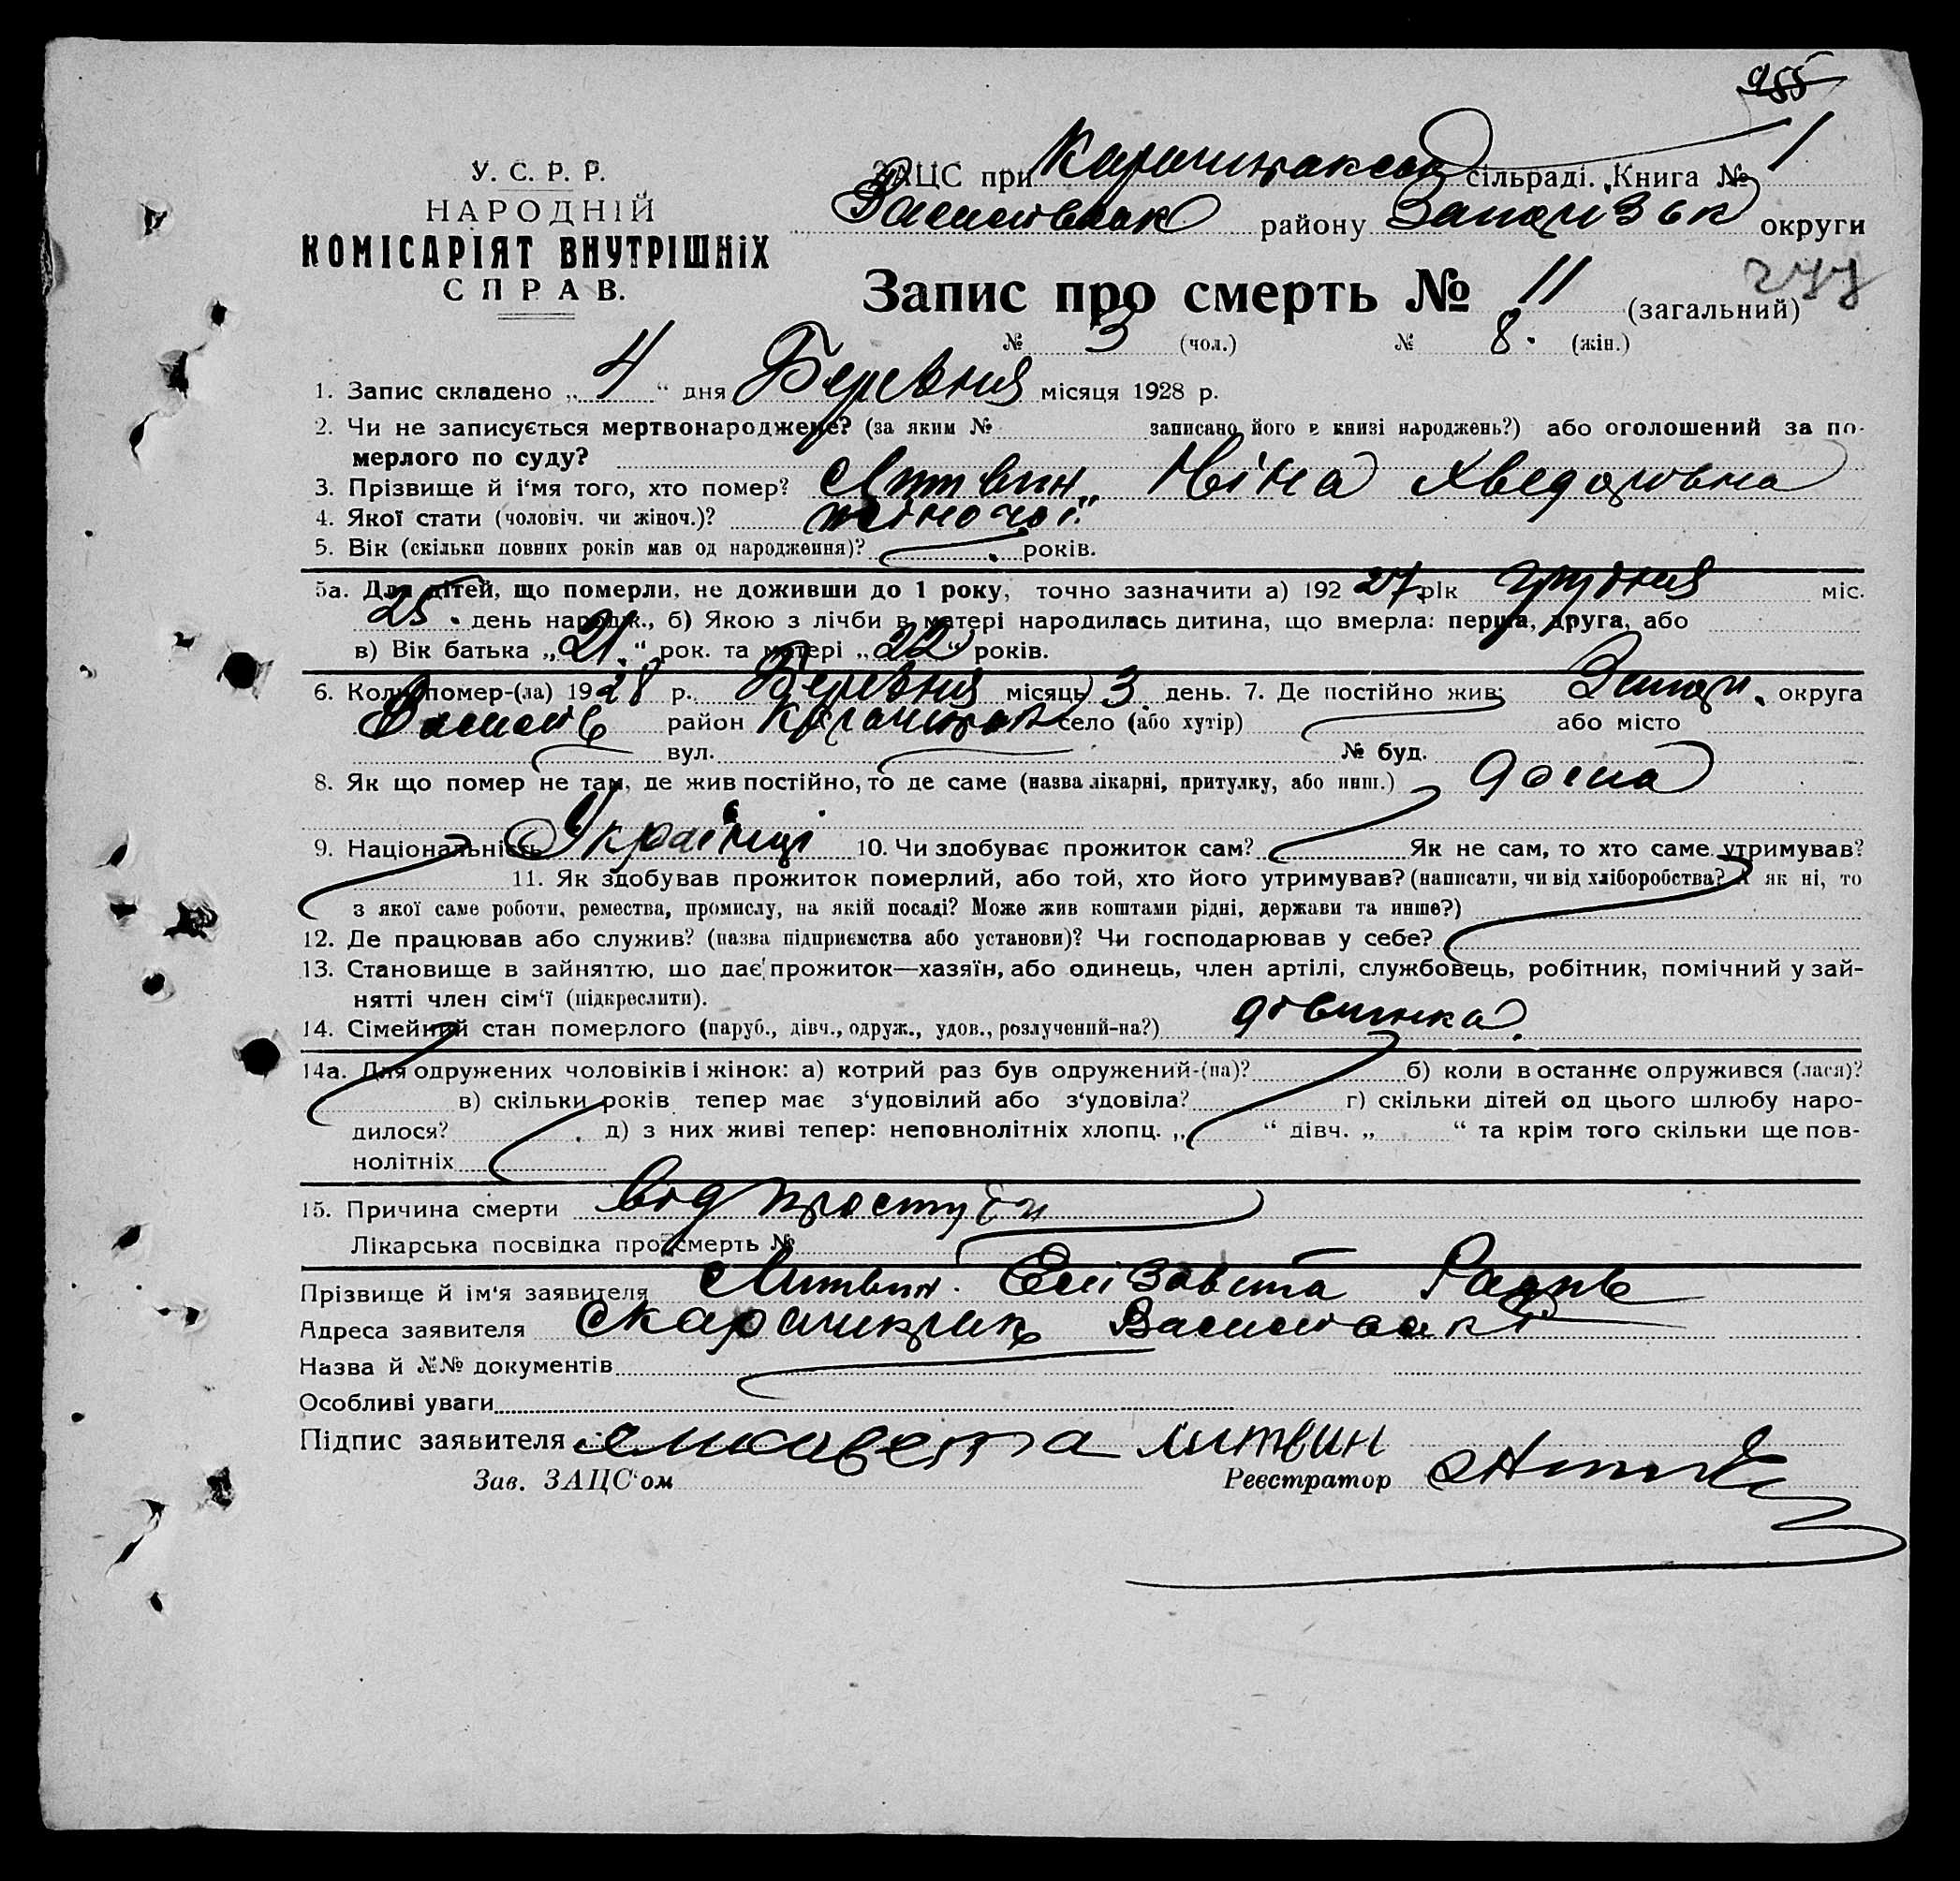 955
У. С. Р. Р.
НАРОДНІЙ
КОМІСАРІЯТ ВНУТРІШНІХ
СПРАВ.
ЗАЦС при сільраді. Книга № 1
району Запорізьк округи
277
Запис про смерть № 11 (загальний)
№ 3 (чол.) № 8. (жін.)
1. Запис складено „ 4 “ дня Березня місяця 1928 р.
2. Чи не записується мертвонароджене? (за яким № записано його в книзі народжень?) або оголошений за по-
мерлого по суду?
3. Прізвище й і'мя того, хто помер? Литвин Ніна Хведоровна
4. Якої стати (чоловіч. чи жіноч.)? жіночої
5. Вік (скільки повних років мав од народження)? років.
5а. Для дітей, що померли, не доживши до 1 року, точно зазначити а) 192 27 рік грудня міс.
25 день народж., б) Якою з лічби в матері народилась дитина, що вмерла: перша, друга, або
в) Вік батька „ 21 “ рок. та матері „ 22 “ років.
6. Коли помер-(ла) 19 28 р. Березня місяць 3 день. 7. Де постійно жив: Запор. округа
Василів район село (або хутір) або місто
вул. № буд.
8. Як що помер не там, де жив постійно, то де саме (назва лікарні, притулку, або инш.) дома
9. Національність Українці 10. Чи здобуває прожиток сам? Як не сам, то хто саме утримував?
11. Як здобував прожиток померлий, або той, хто його утримував? (написати, чи від хліборобства? А як ні, то
з якої саме роботи, ремества, промислу, на якій посаді? Може жив коштами рідні, держави та инше?)
12. Де працював або служив? (назва підприємства або установи)? Чи господарював у себе?
13. Становище в зайняттю, що дає прожиток—хазяїн, або одинець, член артілі, службовець, робітник, помічний у зай-
нятті член сім‘ї (підкреслити).
14. Сімейний стан померлого (паруб., дівч., одруж., удов., розлучений-на?) дівчинка
14а. Для одружених чоловіків і жінок: а) котрий раз був одружений-(на)? б) коли в останнє одружився (лася)?
в) скільки років тепер має з‘удовілий або з‘удовіла? г) скільки дітей од цього шлюбу наро-
дилося? д) з них живі тепер: неповнолітніх хлопц. „ “ дівч. „ “ та крім того скільки ще пов-
нолітніх
15. Причина смерти від простуди
Лікарська посвідка про смерть №
Прізвище й ім'я заявителя Литвин Елізавета
Адреса заявителя
Назва й №№ документів
Особливі уваги
Підпис заявителя Елисавета Литвин
Зав. ЗАЦС‘ом Реєстратор